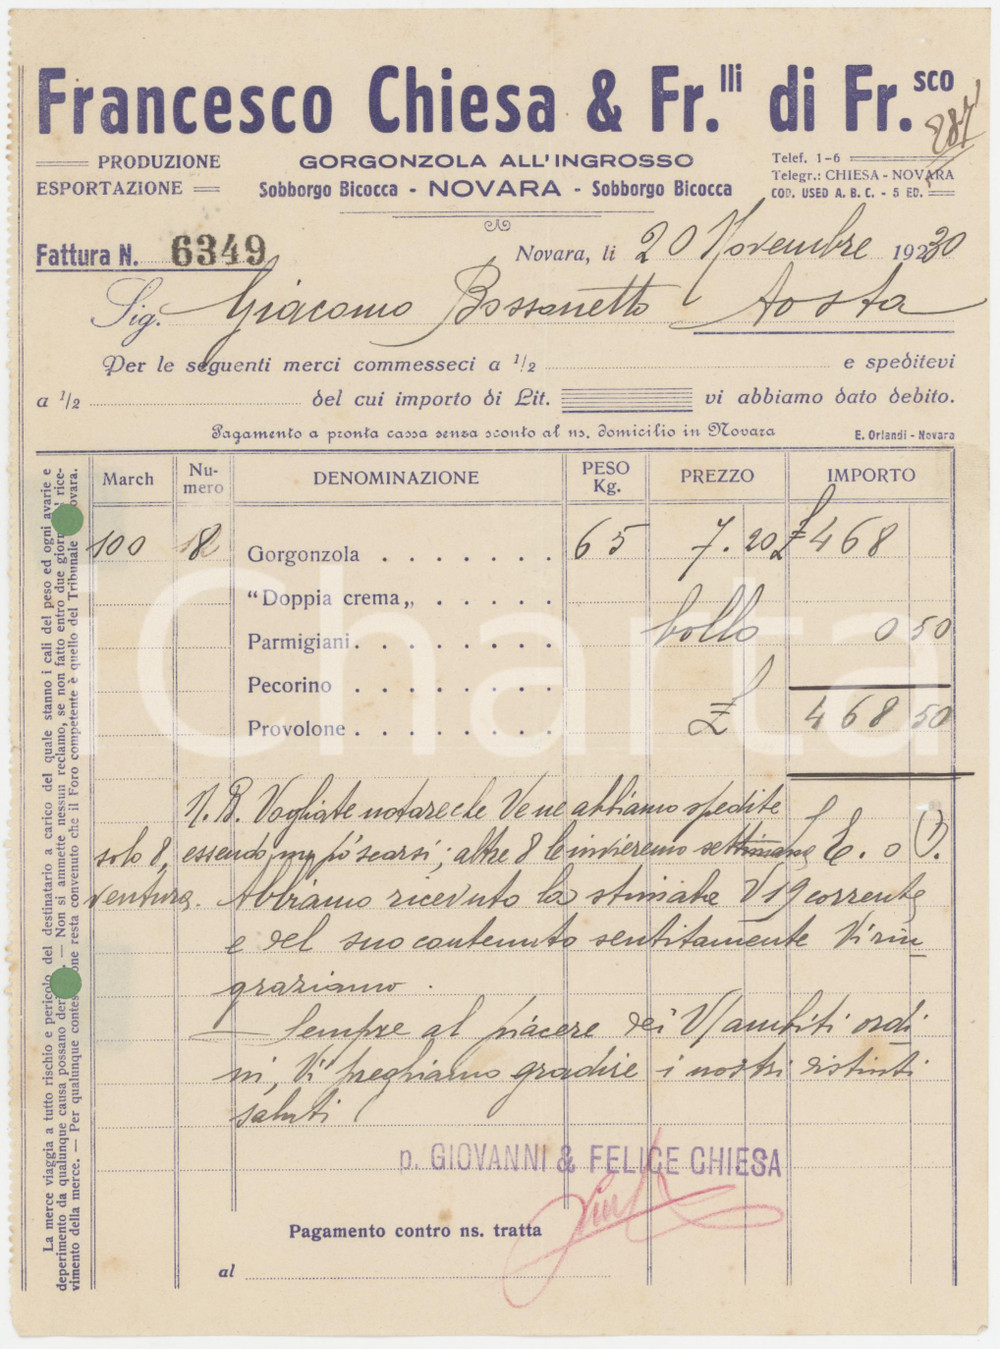 Francesco Chiesa & Fr.lli di Fr.sco
287
PRODUZIONE
ESPORTAZIONE
GORGONZOLA ALL'INGROSSO
Sobborgo Bicocca - NOVARA - Sobborgo Bicocca
Telef. 1-6
Telegr.: CHIESA - NOVARA
COD. USED A. B. C. - 5 ED.
Fattura N. 6349
Novara, li 20 Novembre 1930
Sig. Giacomo Bossonetto Aosta
Per le seguenti merci commesseci a 1/2 e speditevi
a 1/2 del cui importo di Lit. vi abbiamo dato debito.
Pagamento a pronta cassa senza sconto al ns. domicilio in Novara
E. Orlandi - Novara
March Nu-mero DENOMINAZIONE PESO Kg. PREZZO IMPORTO
100 8 Gorgonzola 65 7.20 £ 468
"Doppia crema„
Parmigiani bollo 0 50
Pecorino
Provolone £ 468 50
N.B. Vogliate notare che Ve ne abbiamo spedite
solo 8, essendo un pò scarsi; altre 8 le invieremo settimana
ventura. Abbiamo ricevuto la stimata V/ 19 corrente
e del suo contenuto sentitamente Vi rin
graziamo.
Sempre al piacere dei V/ ambiti ordi
ni, Vi preghiamo gradire i nostri distinti
saluti
p. GIOVANNI & FELICE CHIESA
Pagamento contro ns. tratta
al
La merce viaggia a tutto rischio e pericolo del destinatario a carico del quale stanno i cali del peso ed ogni avarie e
deperimento da qualunque causa possano deri — Non si ammette nessun reclamo, se non fatto entro due giorn rice-
vimento della merce. — Per qualunque contes one resta convenuto che il Foro competente è quello del Tribunale ovara.
iCharta